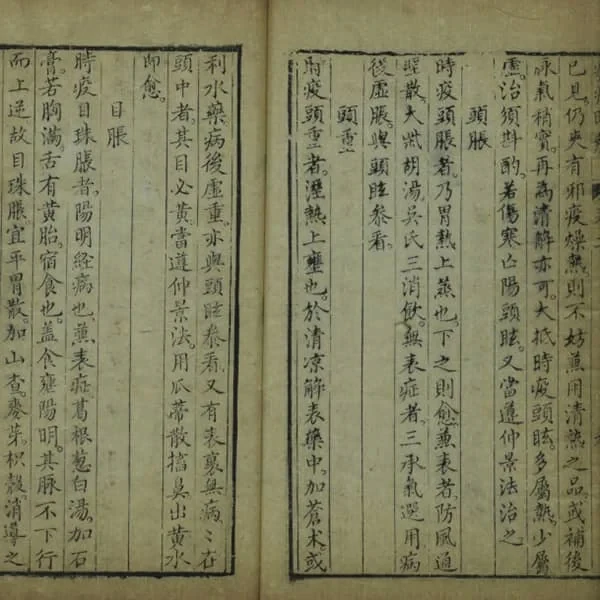 已見仍夾有邪疫燥熱則不妨蕉用清熱之品或補後
脉氣稍實再為清解亦可大抵時疫頭眩多屬熱少屬
虛治須斟酌若傷寒亾陽頭眩又當遵仲景法治之
頭脹
時疫頭脹者乃胃熱上蒸也下之則愈蕉表者防風通
聖散大柴胡湯吳氏三消飲無表症者三承氣選用病
後虛脹與頭眩叅看
頭重
時疫頭重者溼熱上壅也於清凉解表藥中加蒼术或
利水藥病後虛重亦與頭眩叅看又有表裏無病病在
頭中者其目必黃當遵仲景法用瓜蒂散搐鼻出黃水
即愈
目脹
時疫目珠脹者陽明経病也蕉表症葛根葱白湯加石
膏若胸滿舌有黃胎宿食也盖食壅陽明其脉不下行
而上逆故目珠脹宜平胃散加山查麥芽枳殼消導之